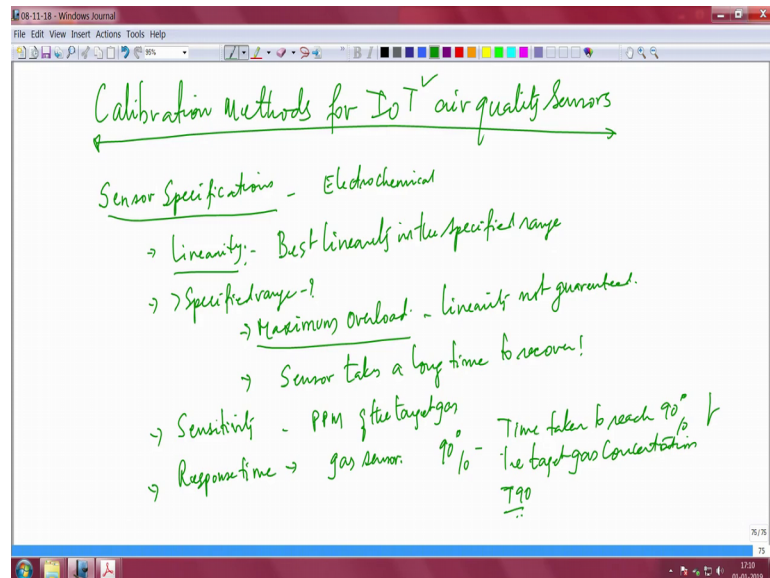 08-11-18 - Windows Journal
File Edit View Insert Actions Tools Help
96%
B I
Calibration Methods for IoT air quality Sensors
Sensor Specifications - Electrochemical
→ Linearity:- Best Linearity in the specified range
→ > Specified range - ?
→ Maximum Overload. - Linearity not guaranteed.
→ Sensor takes a long time to recover!
→ Sensitivity - PPM of the target gas
→ Response time → gas sensor. 90% - Time taken to reach 90% of
the target gas Concentration
T90
75/75
75
17:10
01-01-2019